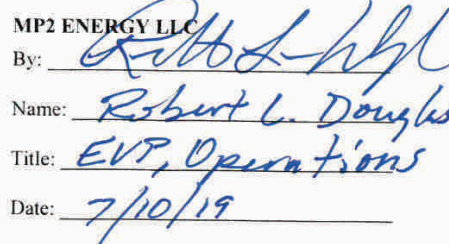 MP2 ENERGY LLC
By:
Name: Robert L. Douglas
Title: EVP, Operations
Date: 7/10/19